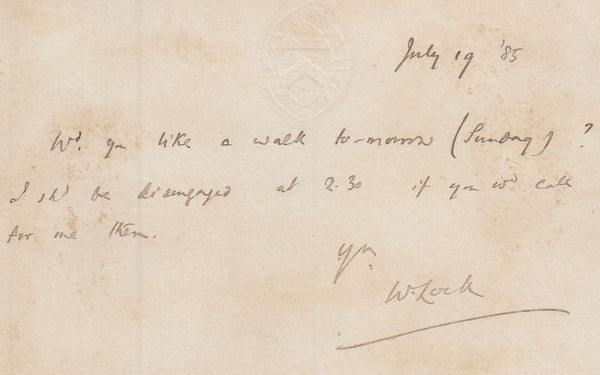 July 19 '85
Wd. you like a walk to-morrow (Sunday)?
I shd be disengaged at 2.30 if you wd call
for me then.
Yrs.
W. Lock